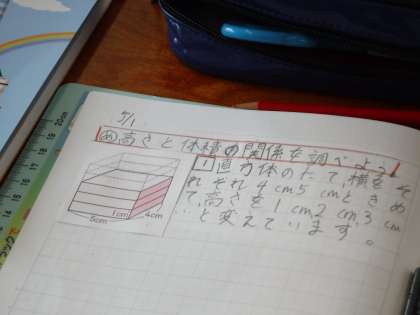 7/1
め高さと体積の関係を調べよう
1 直方体のたて、横をそ
れぞれ4cm 5cmときめ
て、高さを1cm 2cm 3cm
と変えています。
1cm
4cm
5cm
20
19
18
17